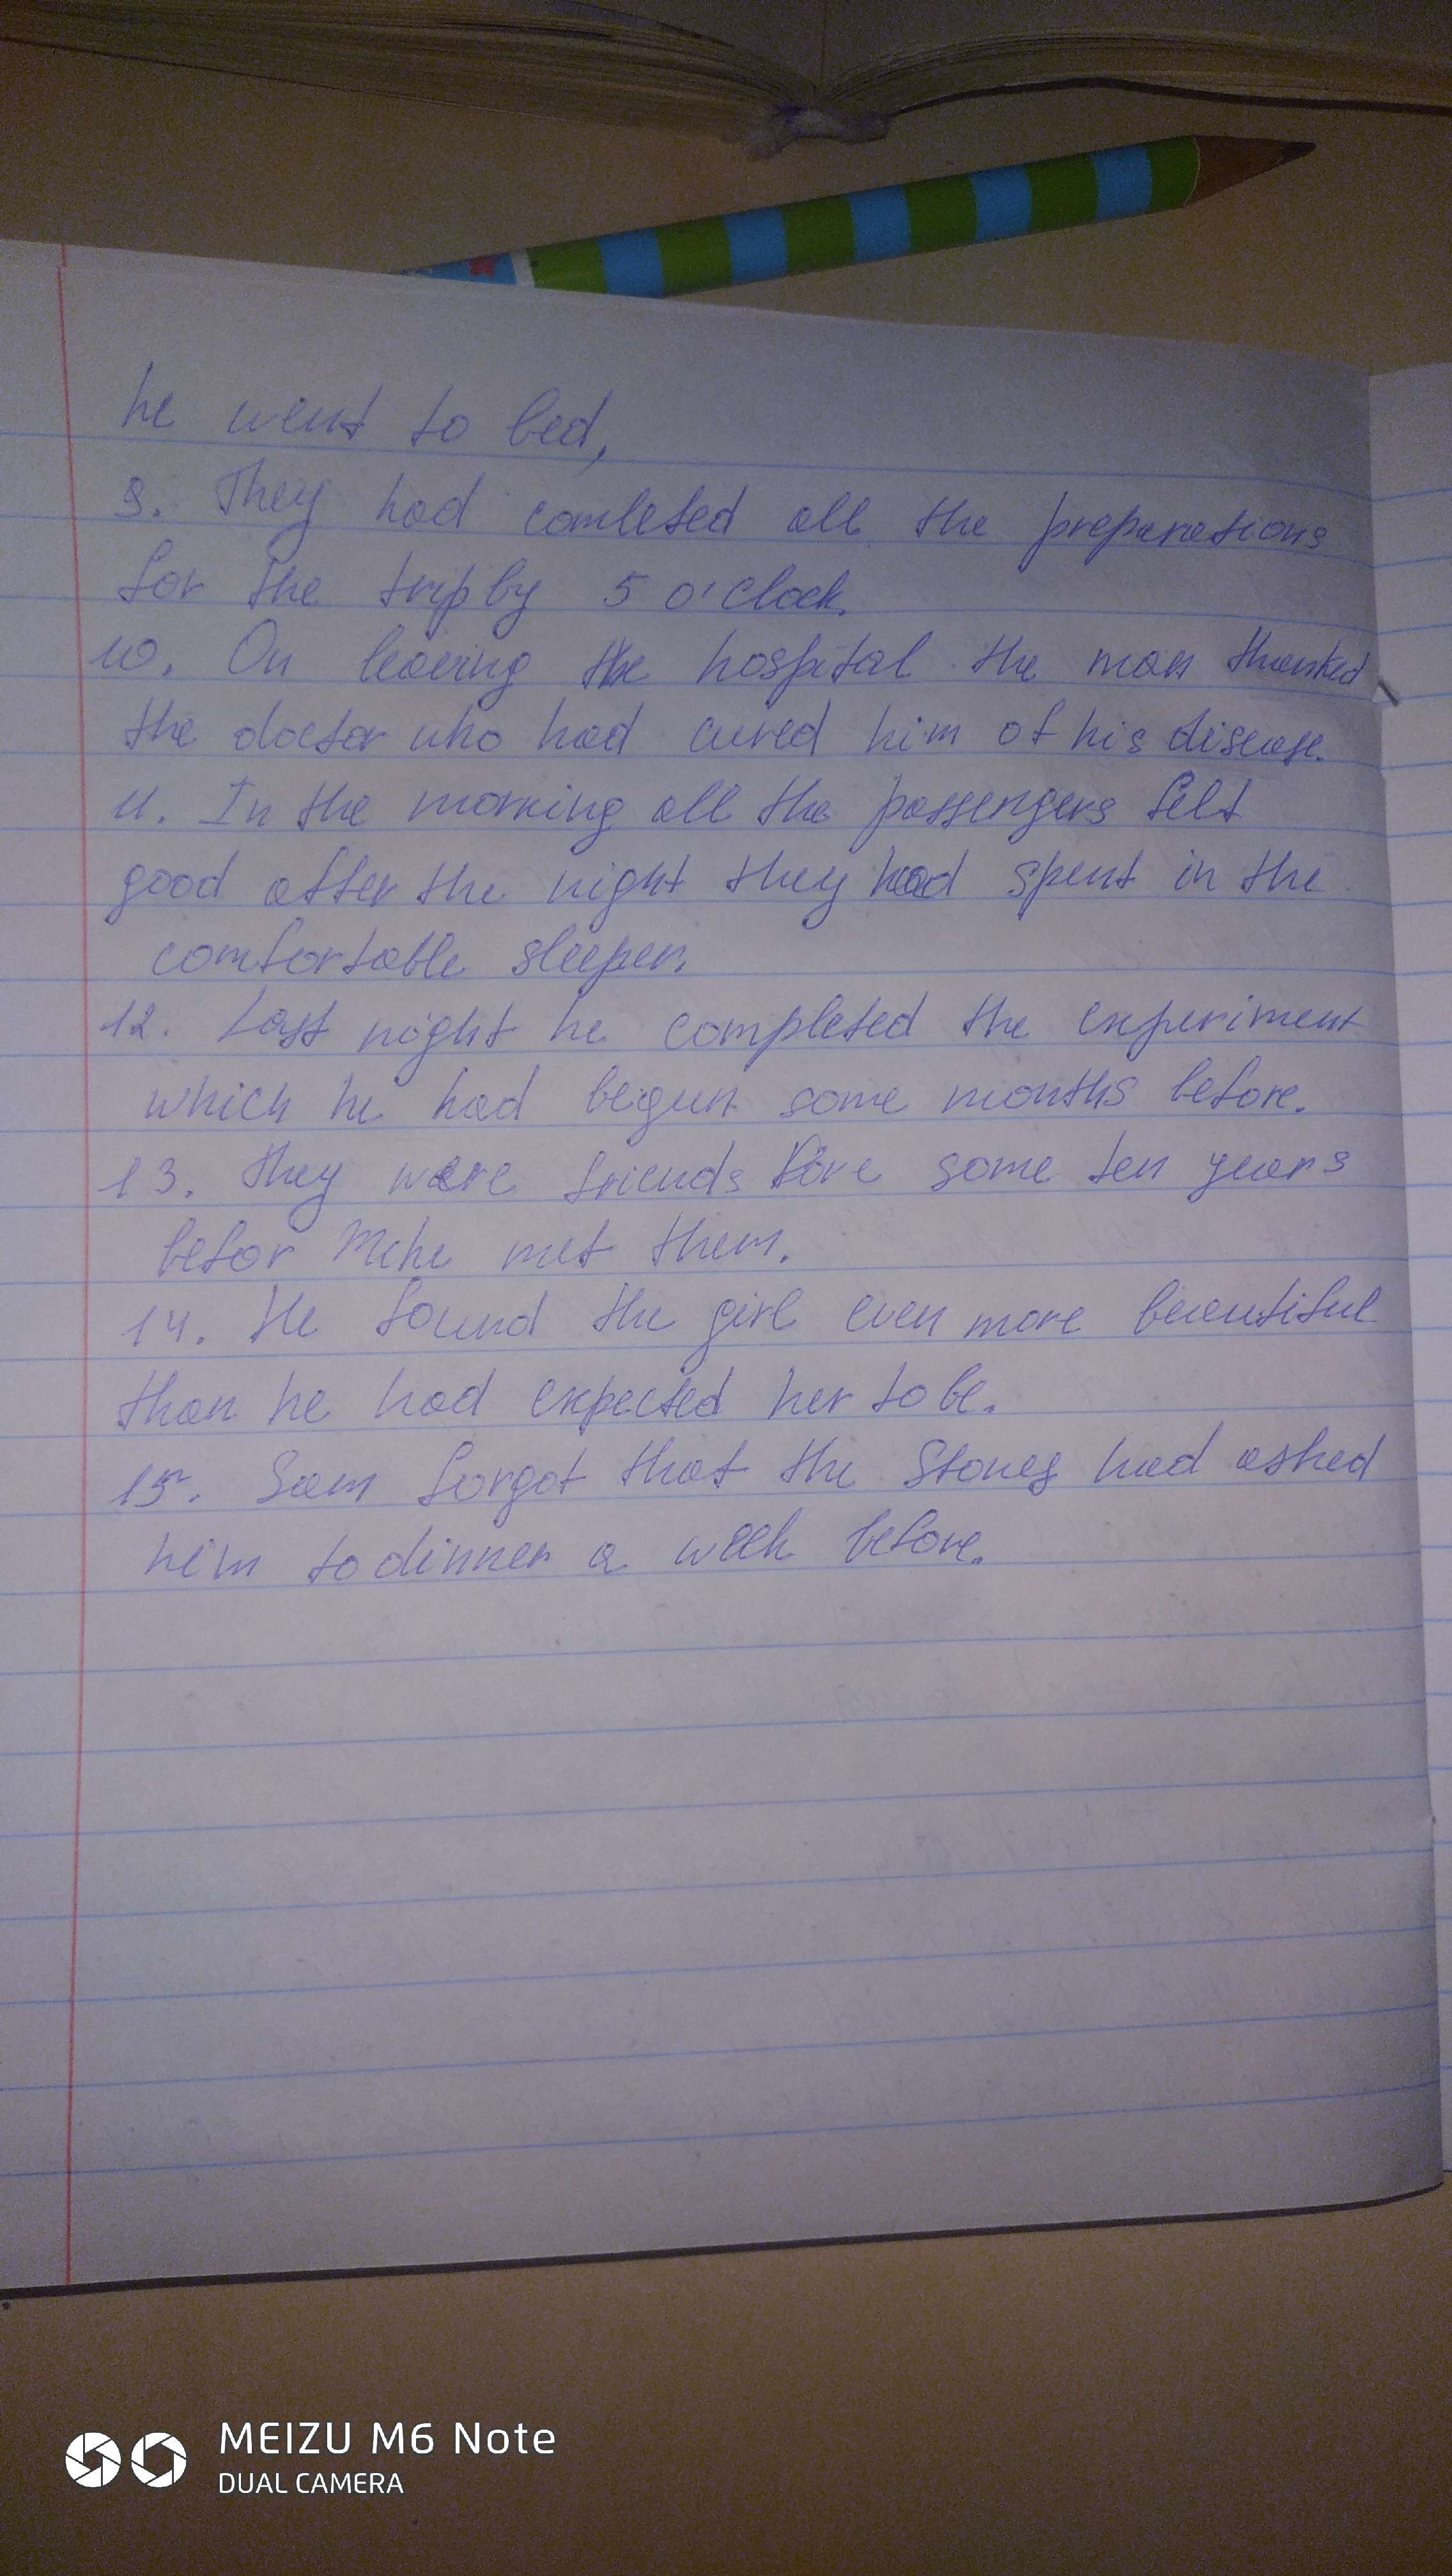 he went to bed,
9. They had comleted all the preparations
for the trip by 5 o'clock.
10. On leaving the hospital the man thanked
the doctor who had cured him of his disease.
11. In the morning all the passengers felt
good after the night they had spent in the
comfortable sleeper.
12. Last night he completed the experiment
which he had begun some months before.
13. They were friends some ten years
befor met them.
14. He found the girl even more beautiful
than he had expected her to be.
15. Sam forgot that the Stones had asked
him to dinner a week before.
MEIZU M6 Note
DUAL CAMERA